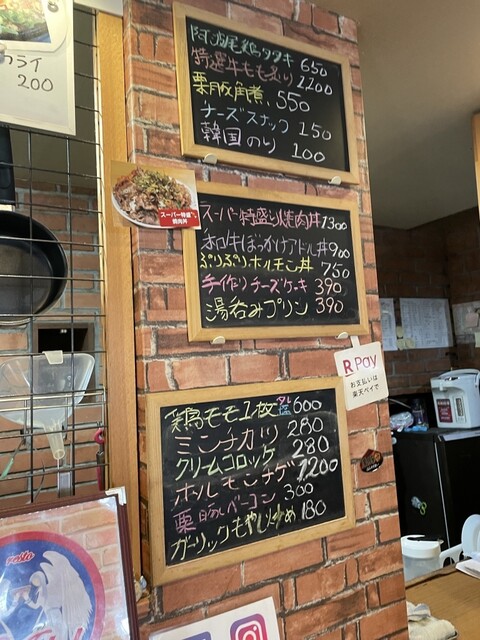 フライ
200
阿波尾鶏タタキ 650
特選牛もも炙り 1200
栗豚角煮、550
チーズスナック 150
韓国のり 100
スーパー特盛り焼肉丼 1300
スーパー特盛
焼肉丼
ホロ牛ぼっかけアドル丼 900
ぷりぷりホルモン丼 750
手作りチーズケーキ 390
湯呑みプリン 390
R Pay
お支払いは
楽天ペイで
鶏モモ1枚 タレ 塩 600
ミンチカツ 280
クリームコロッケ 280
ホルモンチゲ 1200
栗豚ベーコン 300
ガーリックもやし炒め 180